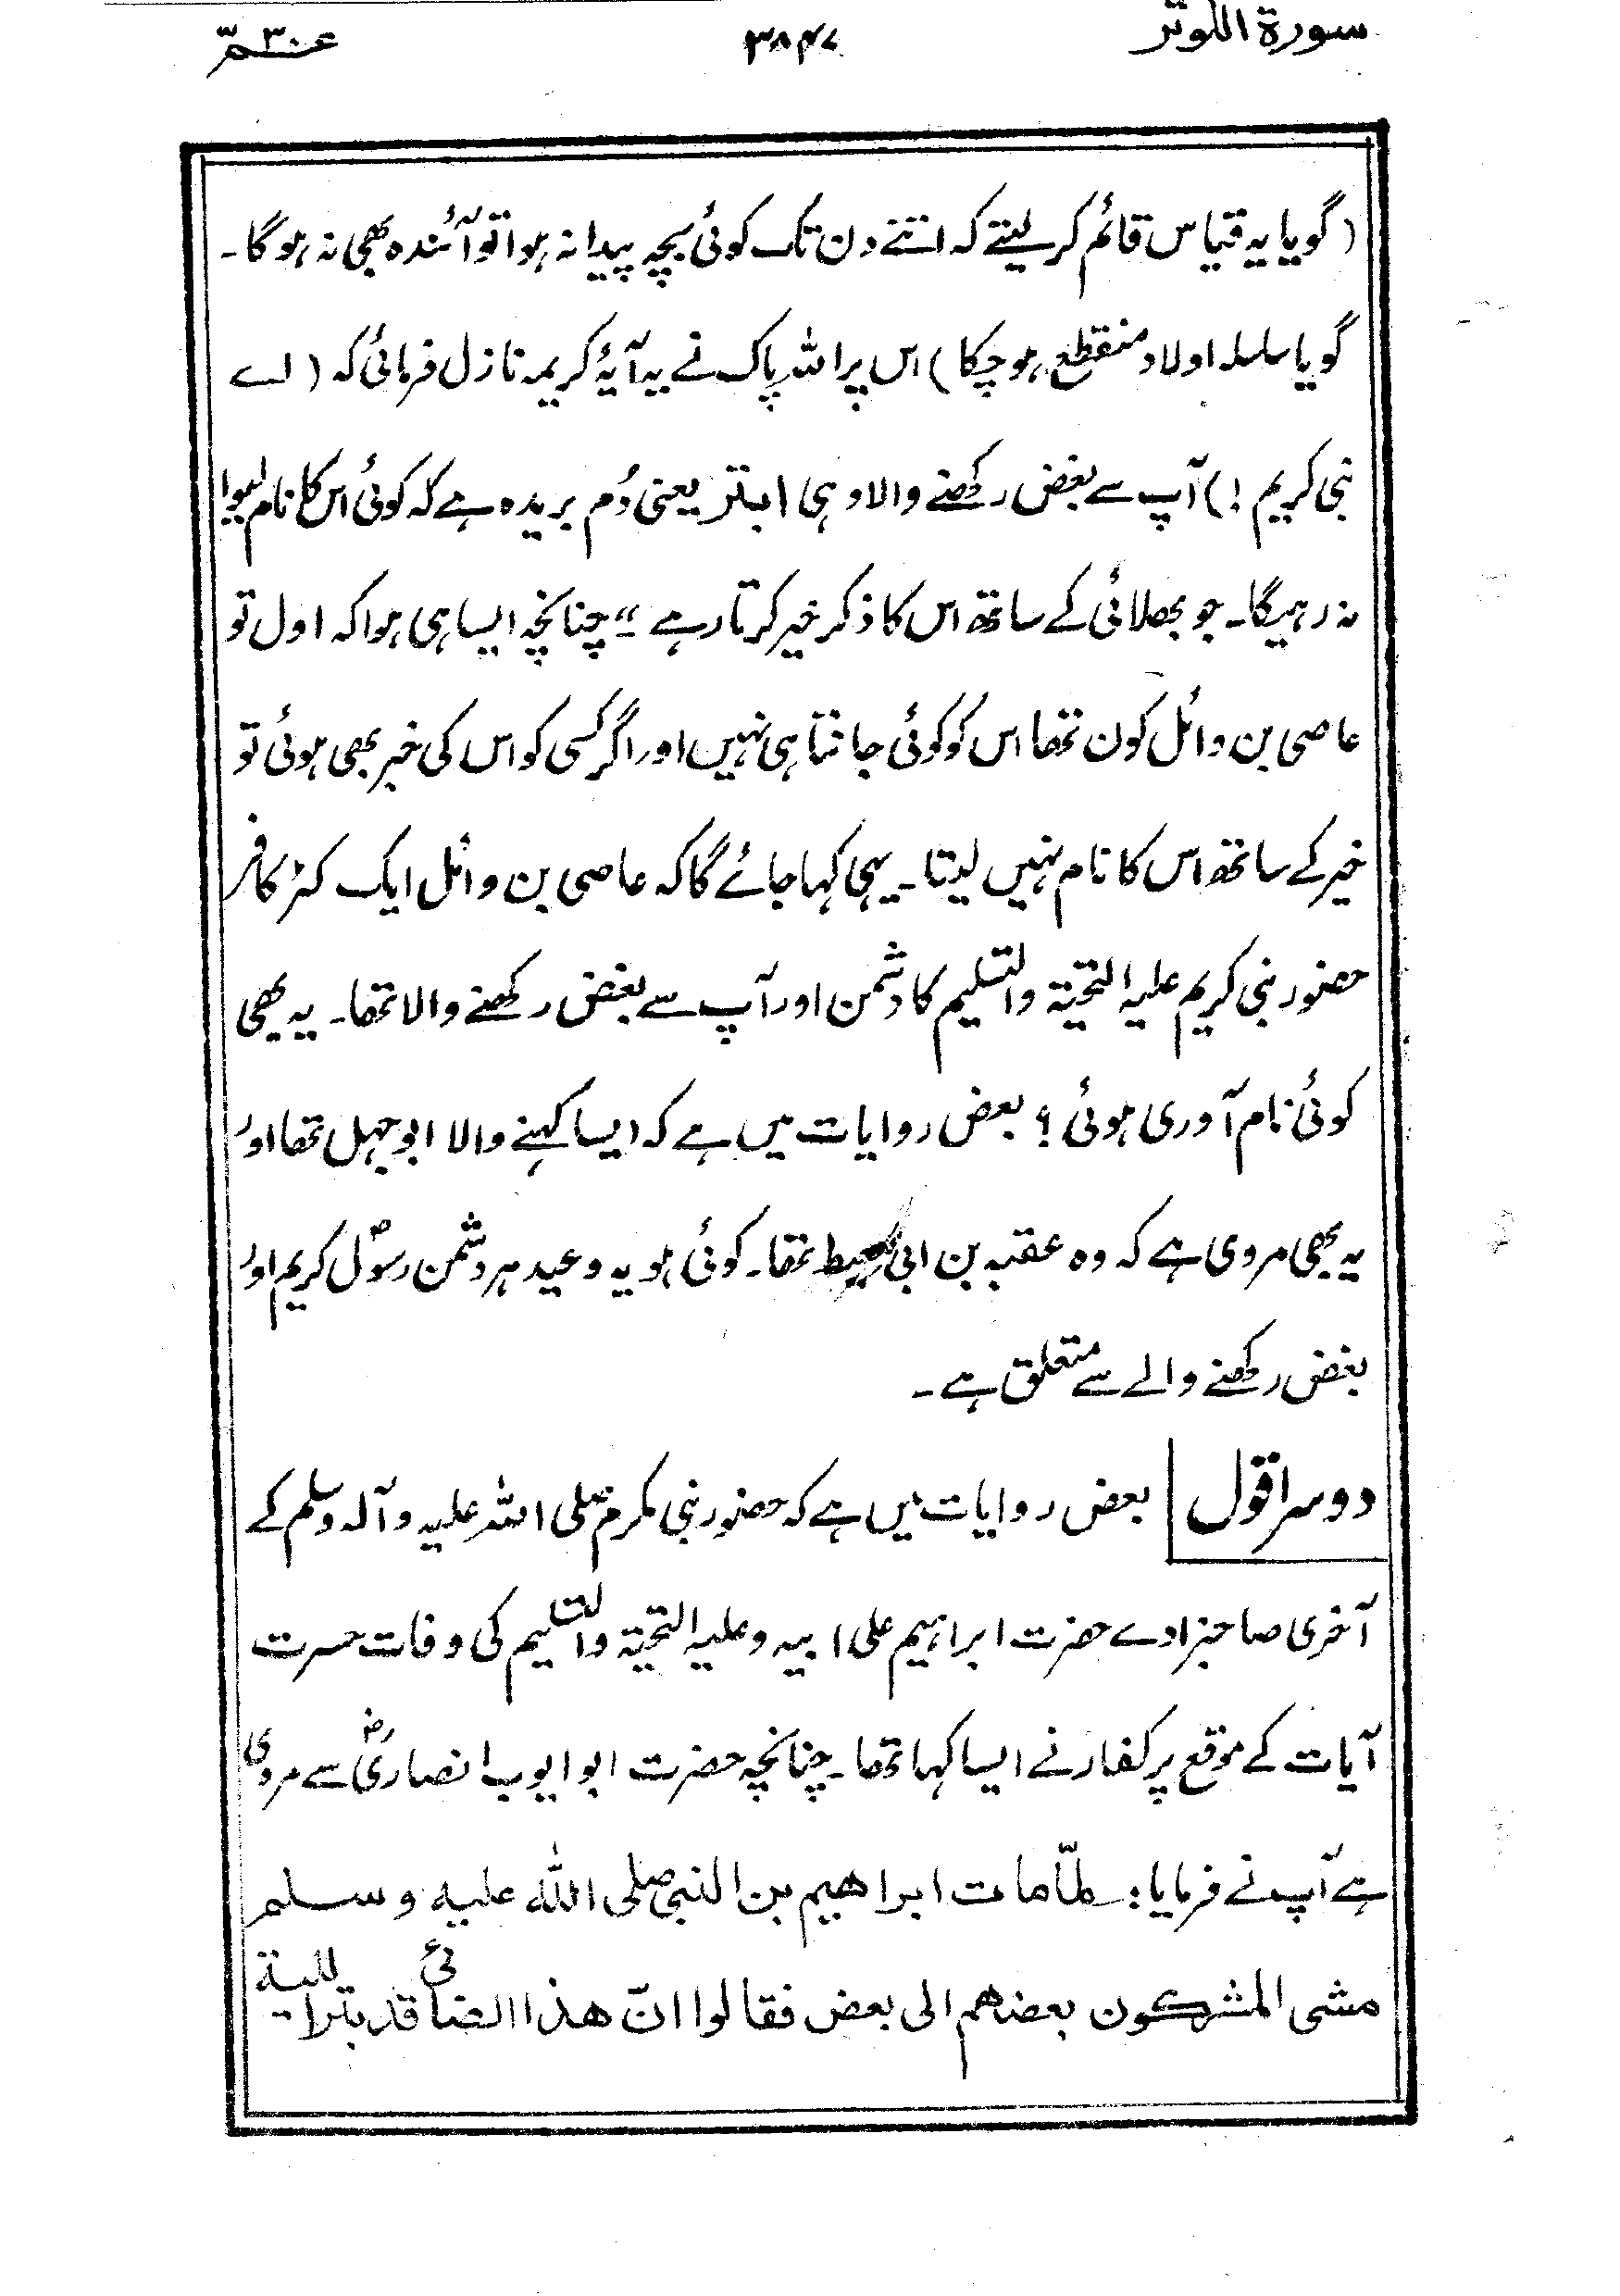 سورة الکوثر ۳۸۴۷ عمّ ۳۰
( گویا یہ قیاس قائم کر لیتے کہ اتنے دن تک کوئی بچہ پیدا نہ ہوا تو آئندہ بھی نہ ہوگا۔
گویا سلسلہ اولاد منقطع ہو چکا) اس پر اللہ پاک نے یہ آیۂ کریمہ نازل فرمائی کہ ( اے
نبی کریم !) آپ سے بغض رکھنے والا وہی ابتر یعنی دُم بریدہ ہے کہ کوئی اس کا نام لیوا
نہ رہیگا۔ جو بھلائی کے ساتھ اس کا ذکر خیر کرتا رہے ‘‘ چنانچہ ایسا ہی ہوا کہ اول تو
عاصی بن وائل کون تھا اس کو کوئی جانتا ہی نہیں اور اگر کسی کو اس کی خبر بھی ہوئی تو
خیر کے ساتھ اس کا نام نہیں لیتا۔ یہی کہا جائے گا کہ عاصی بن وائل ایک کٹر کافر
حضور نبی کریم علیہ التحیة والتسلیم کا دشمن اور آپ سے بغض رکھنے والا تھا۔ یہ بھی
کوئی نام آوری ہوئی ؟ بعض روایات میں ہے کہ ایسا کہنے والا ابو جہل تھا اور
یہ بھی مروی ہے کہ وہ عقبہ بن ابی معیط تھا۔ کوئی ہو یہ وعید ہر دشمن رسولؐ کریم اور
بغض رکھنے والے سے متعلق ہے۔
دوسرا قول بعض روایات میں ہے کہ حضور نبی مکرم صلی اللہ علیہ وآلہ وسلم کے
آخری صاحبزادے حضرت ابراہیم علی ابیہ وعلیہ التحیة والتسلیم کی وفات حسرت
آیات کے موقع پر کفار نے ایسا کہا تھا۔ چنانچہ حضرت ابو ایوب انصاریؓ سے مروی
ہے آپ نے فرمایا: لمّا مات ابراھیم بن النبی صلی اللہ علیہ وسلم
مشی المشرکون بعضھم الی بعض فقالوا انّ ھذا الصابیٔ قد بتر اللیلة